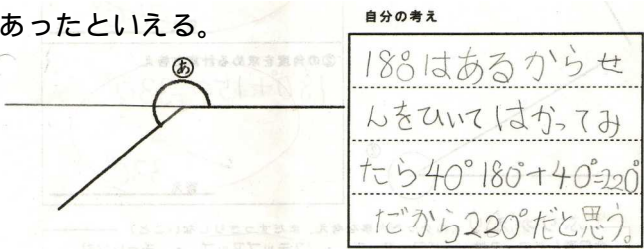 あったといえる。
自分の考え
あ
180はあるからせ
んをひいてはかってみ
たら40°180°+40°=220°
だから220°だと思う。